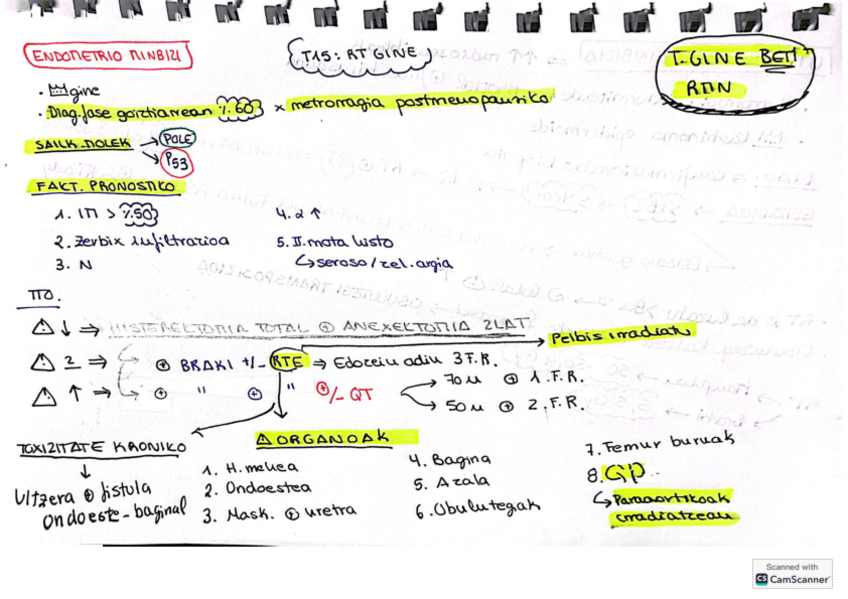 ENDOMETRIO MINBIZI
T15: RT GINE
T. GINE BETI
RMN
· gine
· Diag. fase goiztiarrean %60 x metrorragia postmenopausiko
SAILK. MOLEK → POLE
→ P53
FAKT. PRONOSTIKO
1. IM > %50
2. Zerbix infiltrazioa
3. N
4. 2 ↑
5. II. mota listo
↳ seroso / zel. argia
TTO.
⚠ ↓ ⇒ HISTEREKTOMIA TOTAL ⊕ ANEXEKTOMIA 2LAT.
Pelbis irradiatu
⚠ 2 ⇒ ⊕ BRAKI +/- RTE ⇒ Edozein adin 3 F.R.
⚠ ↑ ⇒ ⊕ " ⊕ " ⊕/- QT → 70u ⊕ 1. F.R.
→ 50u ⊕ 2. F.R.
TOXIZITATE KRONIKO
↓
Ultzera ⊕ fistula
ondoeste-baginal
⚠ ORGANOAK
1. H. mehea
2. Ondoestea
3. Mask. ⊕ uretra
4. Bagina
5. Azala
6. Obulutegiak
7. Femur buruak
8. GP..
↳ Paraaortikoak
irradiatzean
Scanned with
CS CamScanner